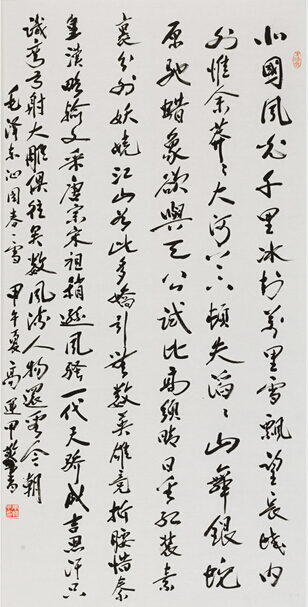 北国风光千里冰封万里雪飘望长城内
外惟余莽莽大河上下顿失滔滔山舞银蛇
原驰蜡象欲与天公试比高须晴日看红装素
裹分外妖娆江山如此多娇引无数英雄竞折腰惜秦
皇汉武略输文采唐宗宋祖稍逊风骚一代天骄成吉思汗只
识弯弓射大雕俱往矣数风流人物还看今朝
毛泽东沁园春雪 甲午夏 高运甲